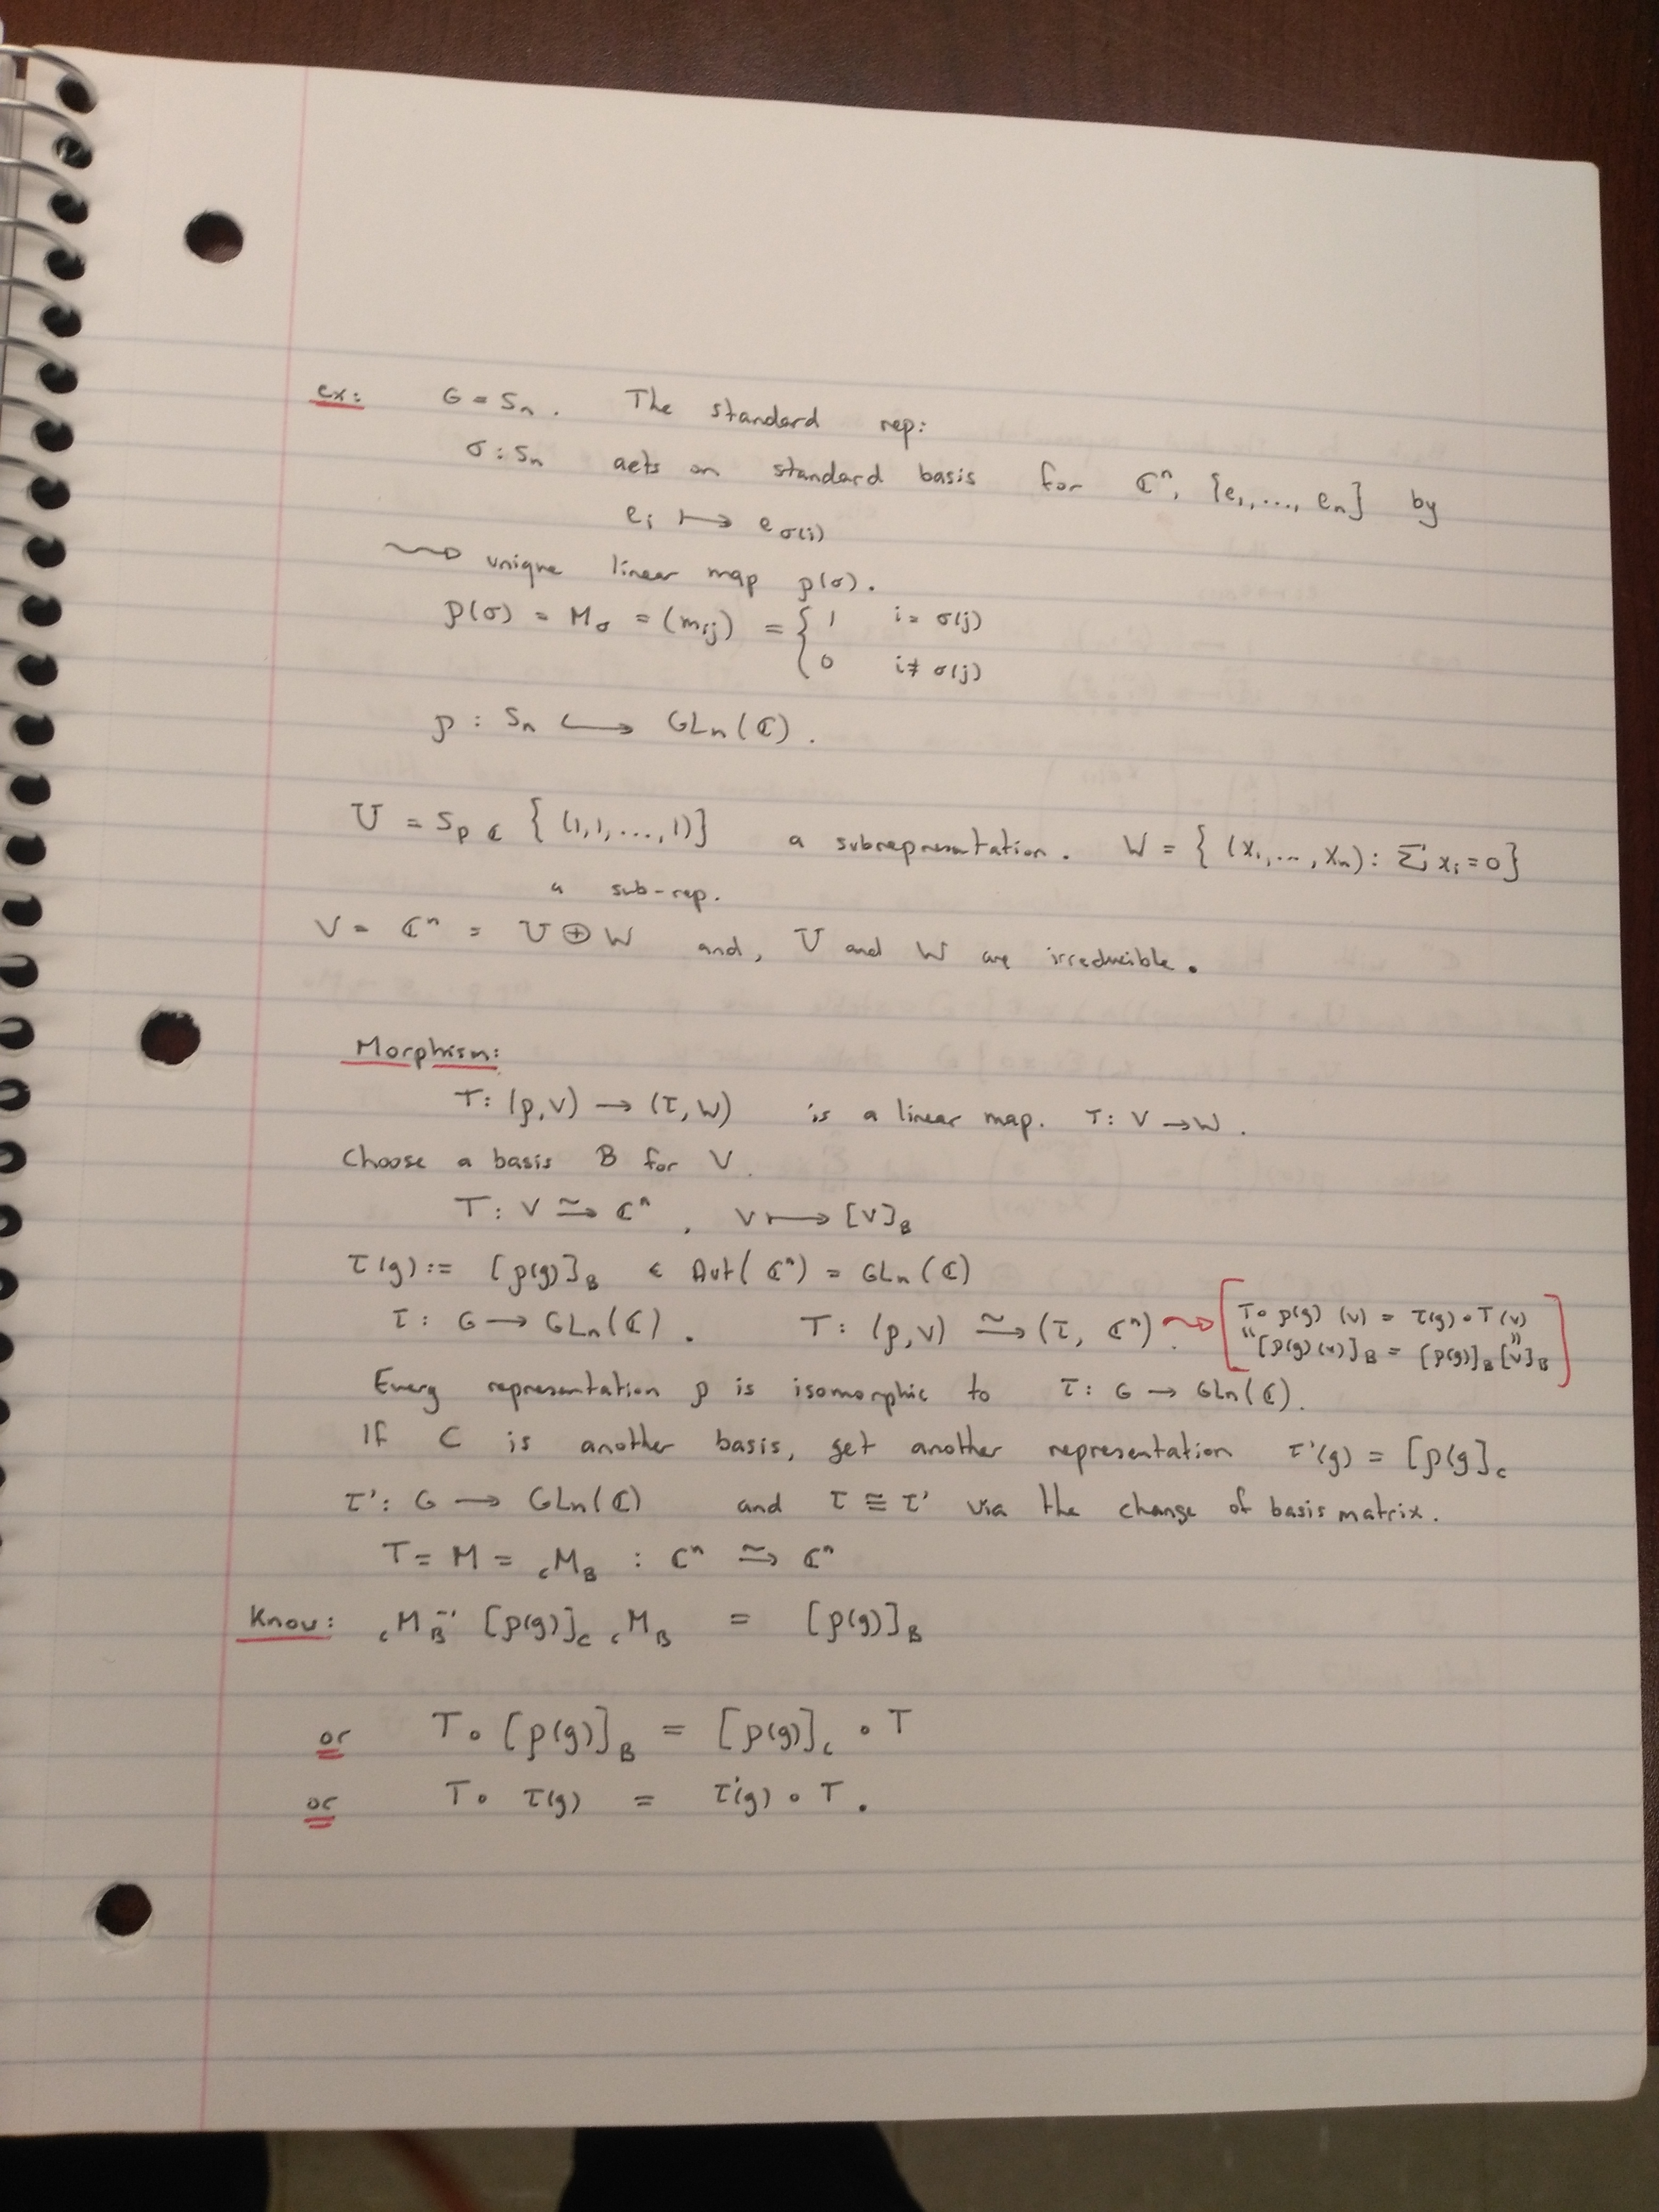 ex: G = Sn. The standard rep:
σ : Sn acts on standard basis for ℂⁿ, {e₁, ..., eₙ} by
eᵢ ↦ e_σ(i)
⇝ unique linear map ρ(σ).
ρ(σ) = M_σ = (mᵢⱼ) = { 1 i = σ(j)
0 i ≠ σ(j)
ρ : Sn ↪ GLn(ℂ).
U = Sp_ℂ {(1,1,...,1)} a subrepresentation. W = {(x₁,...,xₙ) : Σ xᵢ = 0}
a sub-rep.
V = ℂⁿ = U ⊕ W and, U and W are irreducible.
Morphism:
T : (ρ,V) → (τ,W) is a linear map. T : V → W.
Choose a basis B for V.
T : V ⥲ ℂⁿ, v ↦ [v]_B
τ(g) := [ρ(g)]_B ∈ Aut(ℂⁿ) = GLn(ℂ)
τ : G → GLn(ℂ). T : (ρ,V) ⥲ (τ, ℂⁿ). ⇝ [T∘ρ(g)(v) = τ(g)∘T(v)
"[ρ(g)(v)]_B = [ρ(g)]_B [v]_B"]
Every representation ρ is isomorphic to τ : G → GLn(ℂ).
If C is another basis, get another representation τ'(g) = [ρ(g]_C
τ' : G → GLn(ℂ) and τ ≅ τ' via the change of basis matrix.
T = M = _C M_B : ℂⁿ ⥲ ℂⁿ
Know: _C M_B⁻¹ [ρ(g)]_C _C M_B = [ρ(g)]_B
or T∘[ρ(g)]_B = [ρ(g)]_C ∘ T
or T∘ τ(g) = τ'(g) ∘ T.